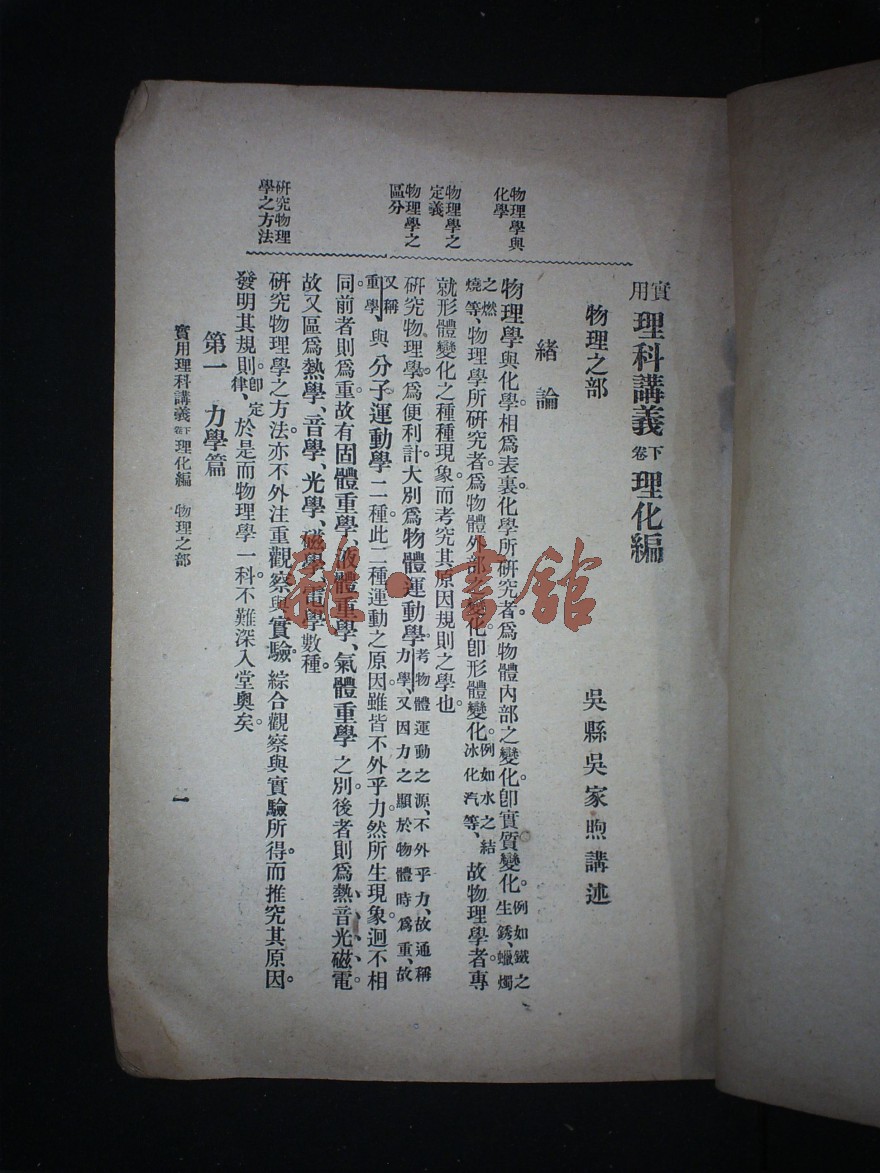 實用理科講義卷下 理化編
物理之部
吳縣吳家煦講述
緒論
物理學與化學
物理學與化學。相爲表裏。化學所研究者。爲物體內部之變化。卽實質變化。例如鐵之生銹、蠟燭
之燃燒等、物理學所研究者。爲物體外部之變化。卽形體變化。例如水之結冰化汽等、故物理學者。專
物理學之定義
就形體變化之種種現象。而考究其原因規則之學也。
物理學之區分
研究物理學。爲便利計。大別爲物體運動學。考物體運動之源、不外乎力、故通稱力學、又因力之顯於物體時爲重、故
又稱重學、與分子運動學二種。此二種運動之原因。雖皆不外乎力。然所生現象。迥不相
同。前者則爲重。故有固體重學、液體重學、氣體重學之別。後者則爲熱、音、光、磁、電。
故又區爲熱學、音學、光學、磁學、電學數種。
研究物理學之方法
研究物理學之方法。亦不外注重觀察與實驗。綜合觀察與實驗所得。而推究其原因。
發明其規則。卽定律、於是而物理學一科。不難深入堂奧矣。
第一 力學篇
實用理科講義卷下 理化編 物理之部
一
雜·書館